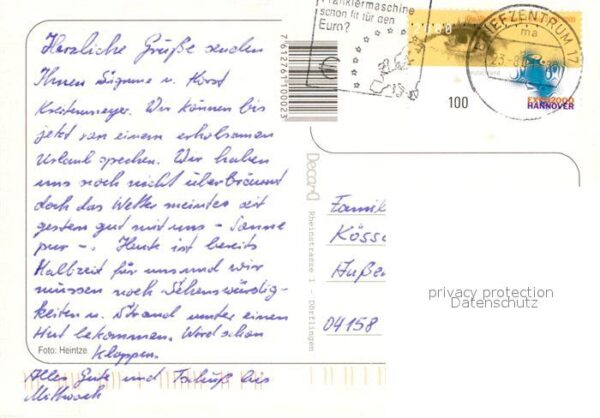 Herzliche Grüße senden
Ihnen Susanne u. Horst
Kreitenmeyer. Wir können bis
jetzt von einem erholsamen
Urlaub sprechen. Wir haben
uns noch nicht überbräunt
doch das Wetter meint es seit
gestern gut mit uns - Sonne
pur -. Heute ist bereits
Halbzeit für uns und wir
müssen noch Sehenswürdig-
keiten u. Strand unter einen
Hut bekommen. Wird schon
klappen.
Alles Gute und Tschüß bis
Mittwoch
Foto: Heintze
7612761 100023
Rheinstrasse 1 - Dörflingen
Frankiermaschine
schon fit für den
Euro?
€
BRIEFZENTRUM 17
ma
23.-8
100
Deutschland
EXPO2000
HANNOVER
Famil
Kösse
Außer
04158
privacy protection
Datenschutz